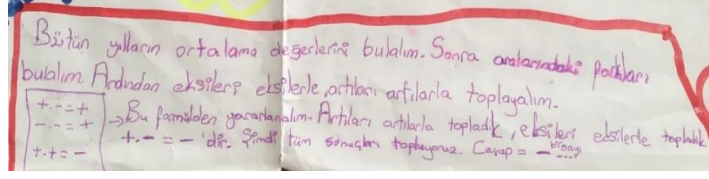 Bütün yılların ortalama değerlerini bulalım. Sonra aralarındaki farkları
bulalım Ardından eksileri eksilerle, artıları artılarla toplayalım.
+.-=+
-.-=+
+.+=-
→Bu formülden yararlanalım. Artıları artılarla topladık, eksileri eksilerle topladık
+.-=- 'dir. Şimdi tüm sonuçları topluyoruz. Cevap = -